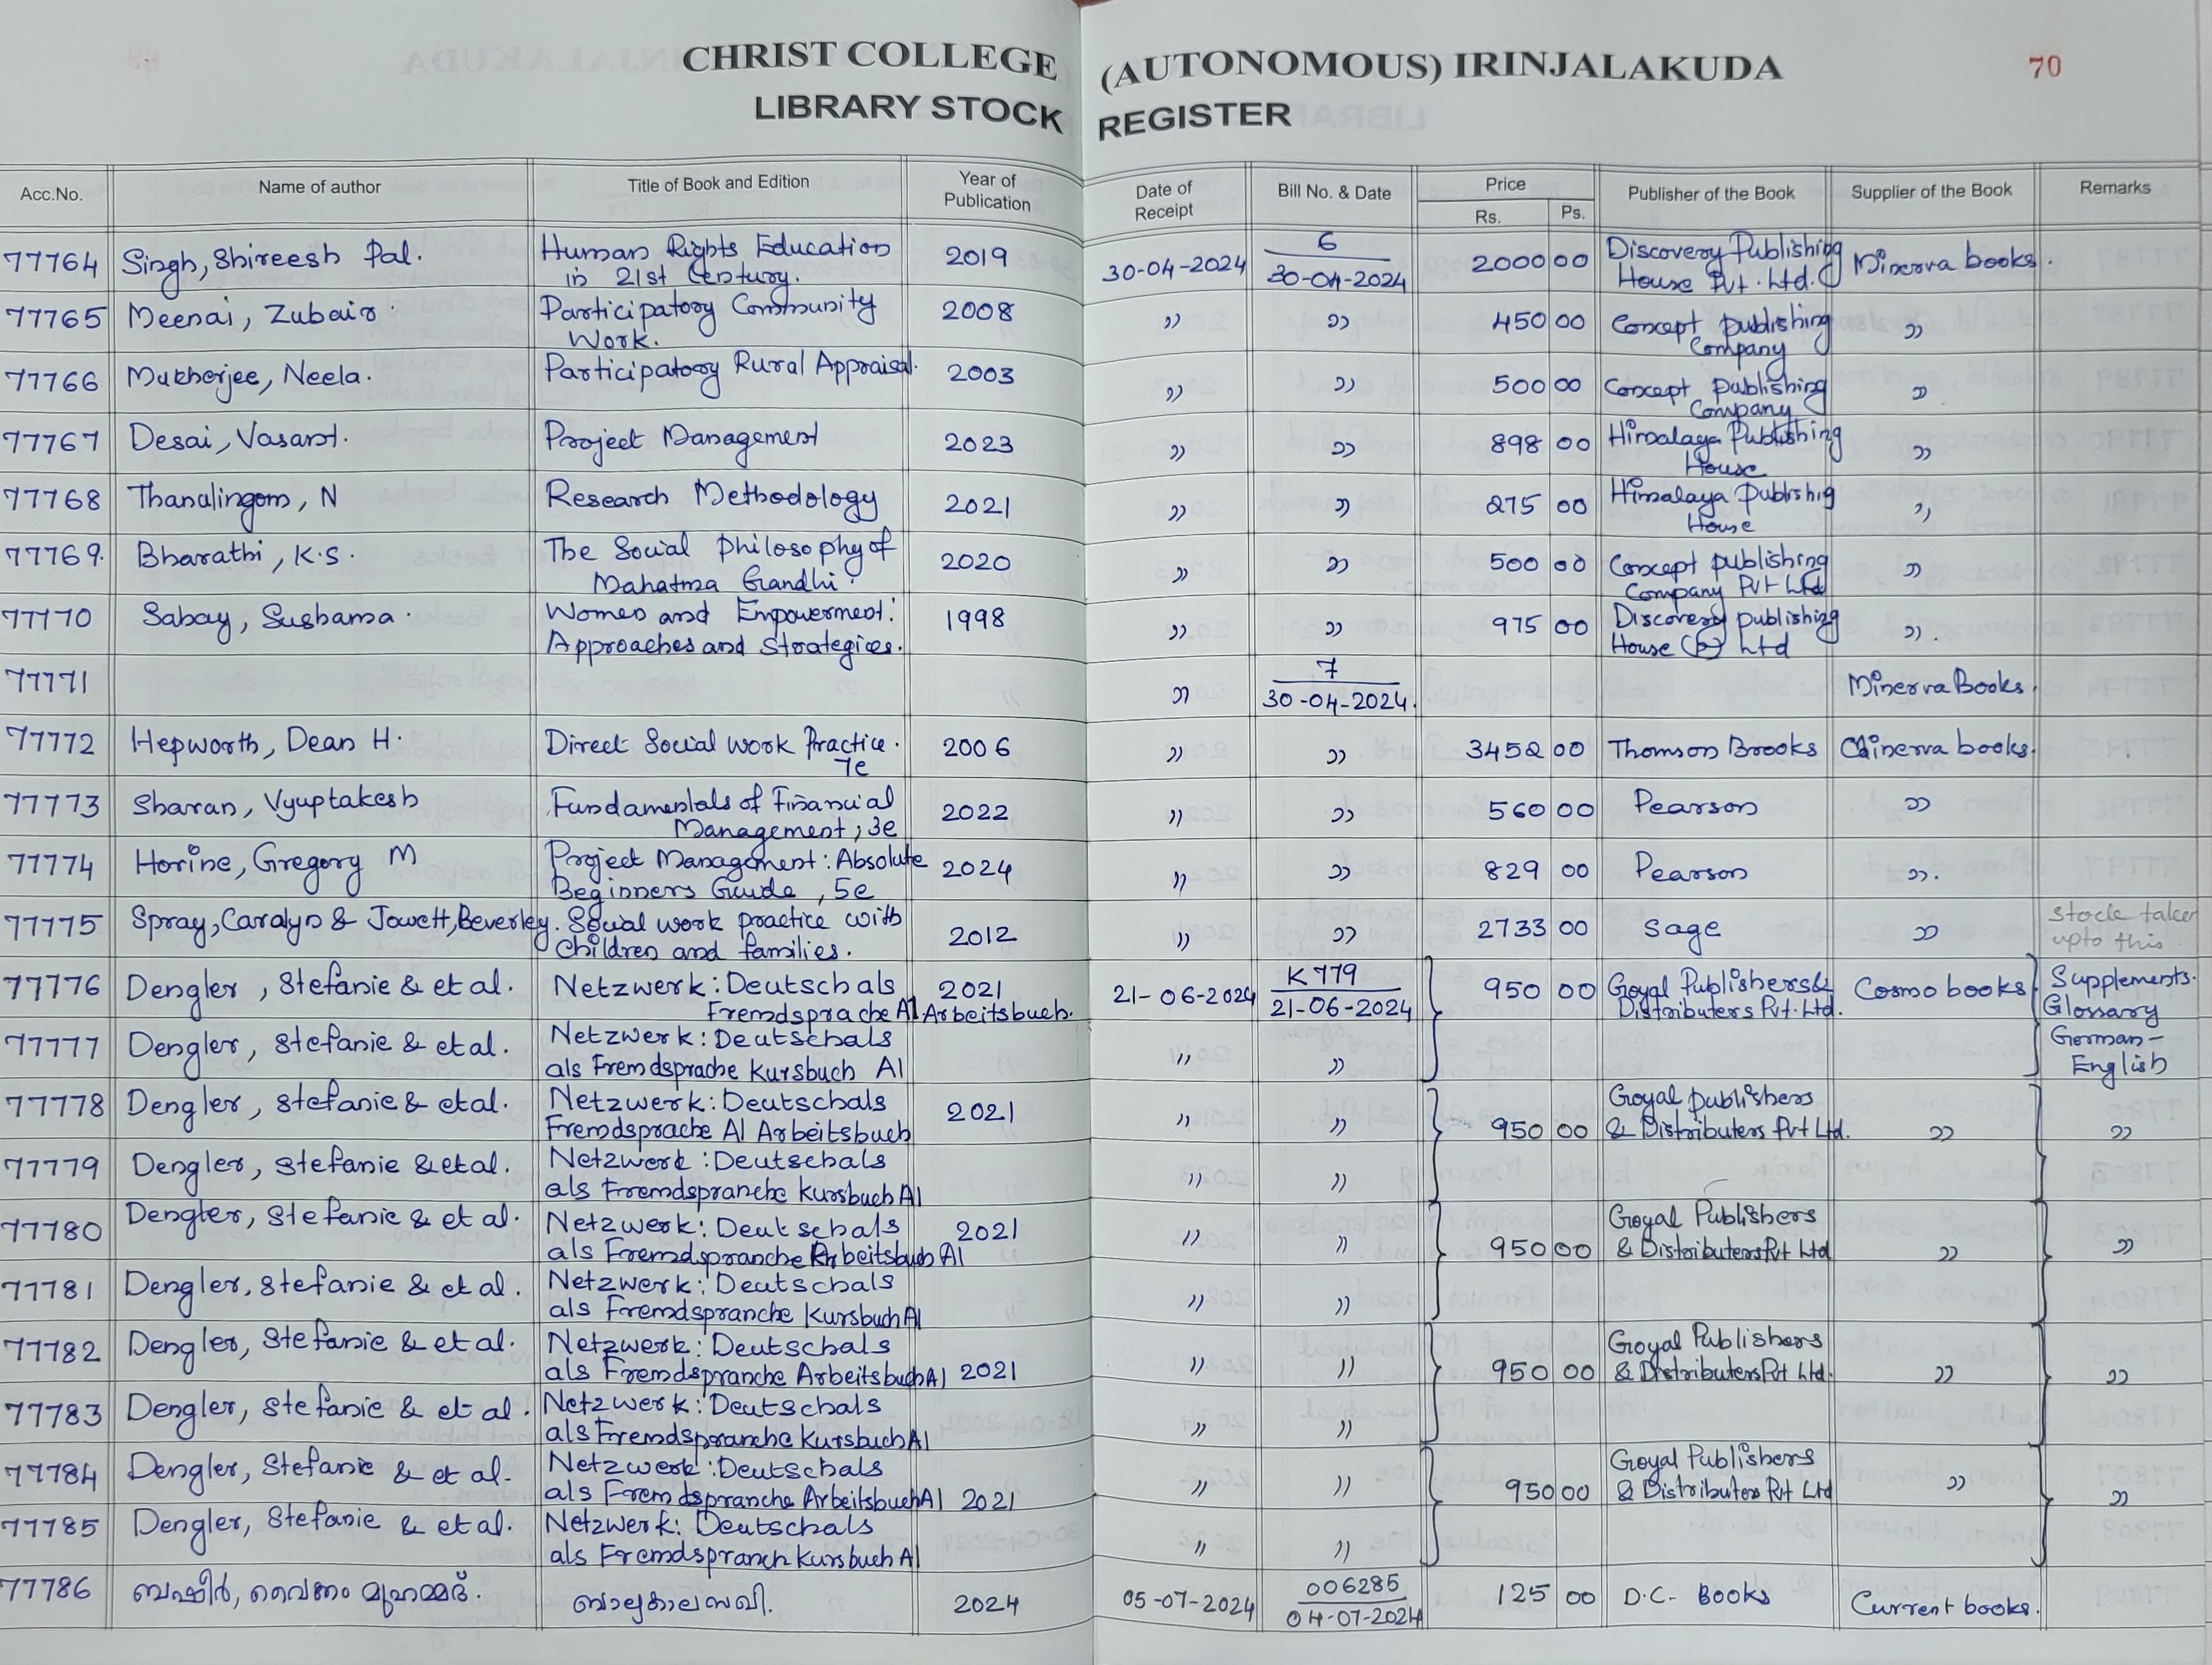 CHRIST COLLEGE (AUTONOMOUS) IRINJALAKUDA 70
LIBRARY STOCK REGISTER
Acc.No. Name of author Title of Book and Edition Year of Publication Date of Receipt Bill No. & Date Price Rs. Ps. Publisher of the Book Supplier of the Book Remarks
77764 Singh, Shireesh Pal. Human Rights Education in 21st Century. 2019 30-04-2024 6 30-04-2024 2000 00 Discovery Publishing House Pvt. Ltd. Minerva books.
77765 Meenai, Zubair Participatory Community Work. 2008 ,, ,, 450 00 Concept publishing Company ,,
77766 Mukherjee, Neela. Participatory Rural Appraisal. 2003 ,, ,, 500 00 Concept publishing Company ,,
77767 Desai, Vasant. Project Management 2023 ,, ,, 898 00 Himalaya Publishing House ,,
77768 Thanulingom, N Research Methodology 2021 ,, ,, 275 00 Himalaya Publishig House ,,
77769. Bharathi, K.S. The Social Philosophy of Mahatma Gandhi. 2020 ,, ,, 500 00 Concept publishing Company Pvt Ltd ,,
77770 Sahay, Sushama. Women and Empowerment: Approaches and Strategies. 1998 ,, ,, 975 00 Discovery publishing House (P) Ltd ,,.
77771 ,, 7 30-04-2024. Minerva Books.
77772 Hepworth, Dean H. Direct Social work Practice. 7e 2006 ,, ,, 3452 00 Thomson Brooks Minerva books.
77773 Sharan, Vyuptakesh Fundamentals of Financial Management, 3e 2022 ,, ,, 560 00 Pearson ,,
77774 Horine, Gregory M Project Management: Absolute Beginners Guide, 5e 2024 ,, ,, 829 00 Pearson ,,.
77775 Spray, Caralyn & Jowett, Beverley. Social work practice with Children and families. 2012 ,, ,, 2733 00 Sage ,, Stock taken upto this
77776 Dengler, Stefanie & et al. Netzwerk: Deutschals Fremdsprache A1 Arbeitsbuch. 2021 21-06-2024 K779 21-06-2024 950 00 Goyal Publishers & Distributers Pvt. Ltd. Cosmo books Supplements. Glossary
77777 Dengler, Stefanie & et al. Netzwerk: Deutschals als Fremdsprache Kursbuch A1 ,, ,, German - English
77778 Dengler, Stefanie & etal. Netzwerk: Deutschals Fremdsprache A1 Arbeitsbuch 2021 ,, ,, 950 00 Goyal publishers & Distributers Pvt Ltd. ,, ,,
77779 Dengler, Stefanie & etal. Netzwerk: Deutschals als Fremdspranche Kursbuch A1 ,, ,,
77780 Dengler, Stefanie & et al. Netzwerk: Deutschals als Fremdspranche Arbeitsbuch A1 2021 ,, ,, 950 00 Goyal Publishers & Distributers Pvt Ltd ,, ,,
77781 Dengler, Stefanie & et al. Netzwerk: Deutschals als Fremdspranche Kursbuch A1 ,, ,,
77782 Dengler, Stefanie & et al. Netzwerk: Deutschals als Fremdspranche Arbeitsbuch A1 2021 ,, ,, 950 00 Goyal Publishers & Distributers Pvt Ltd. ,, ,,
77783 Dengler, Stefanie & et al. Netzwerk: Deutschals als Fremdspranche Kursbuch A1 ,, ,,
77784 Dengler, Stefanie & et al- Netzwerk: Deutschals als Fremdspranche Arbeitsbuch A1 2021 ,, ,, 950 00 Goyal Publishers & Distributers Pvt Ltd ,, ,,
77785 Dengler, Stefanie & et al. Netzwerk: Deutschals als Fremdspranch Kursbuch A1 ,, ,,
77786 ബഷീർ, വൈക്കം മുഹമ്മദ്. ബാല്യകാലസഖി. 2024 05-07-2024 006285 04-07-2024 125 00 D.C. Books Current books.